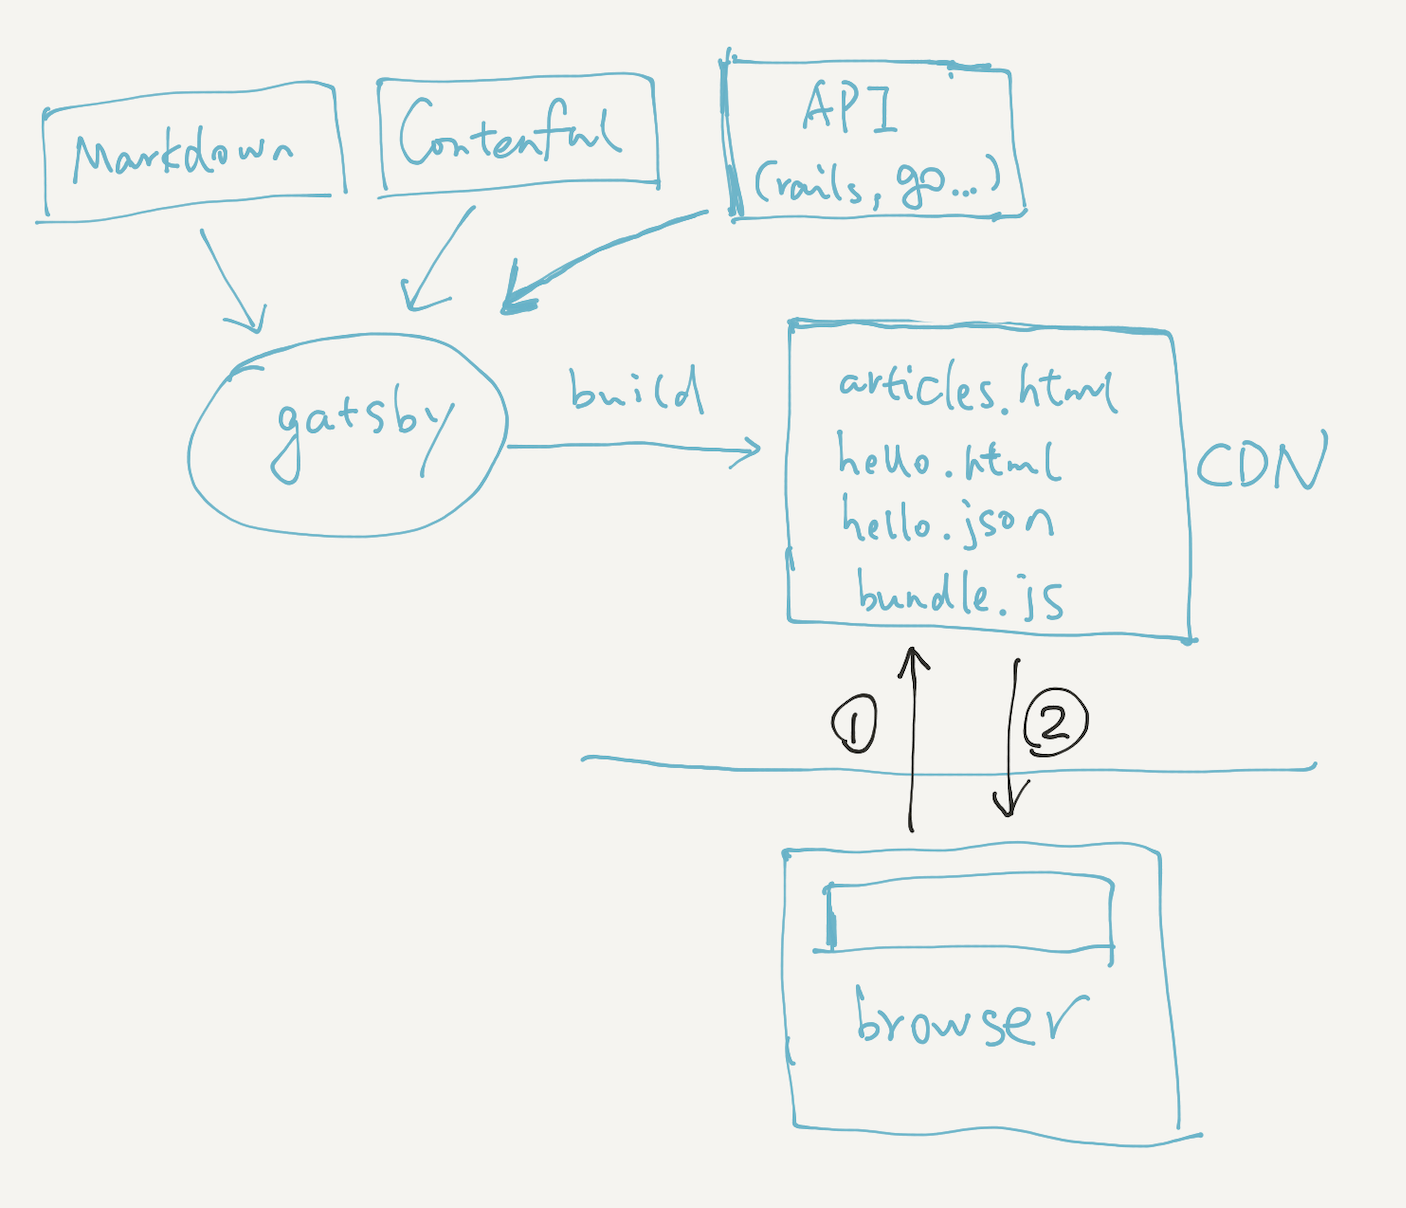 Markdown
Contenful
API
(rails, go...)
gatsby
build
articles.html
hello.html
hello.json
bundle.js
CDN
1
2
browser